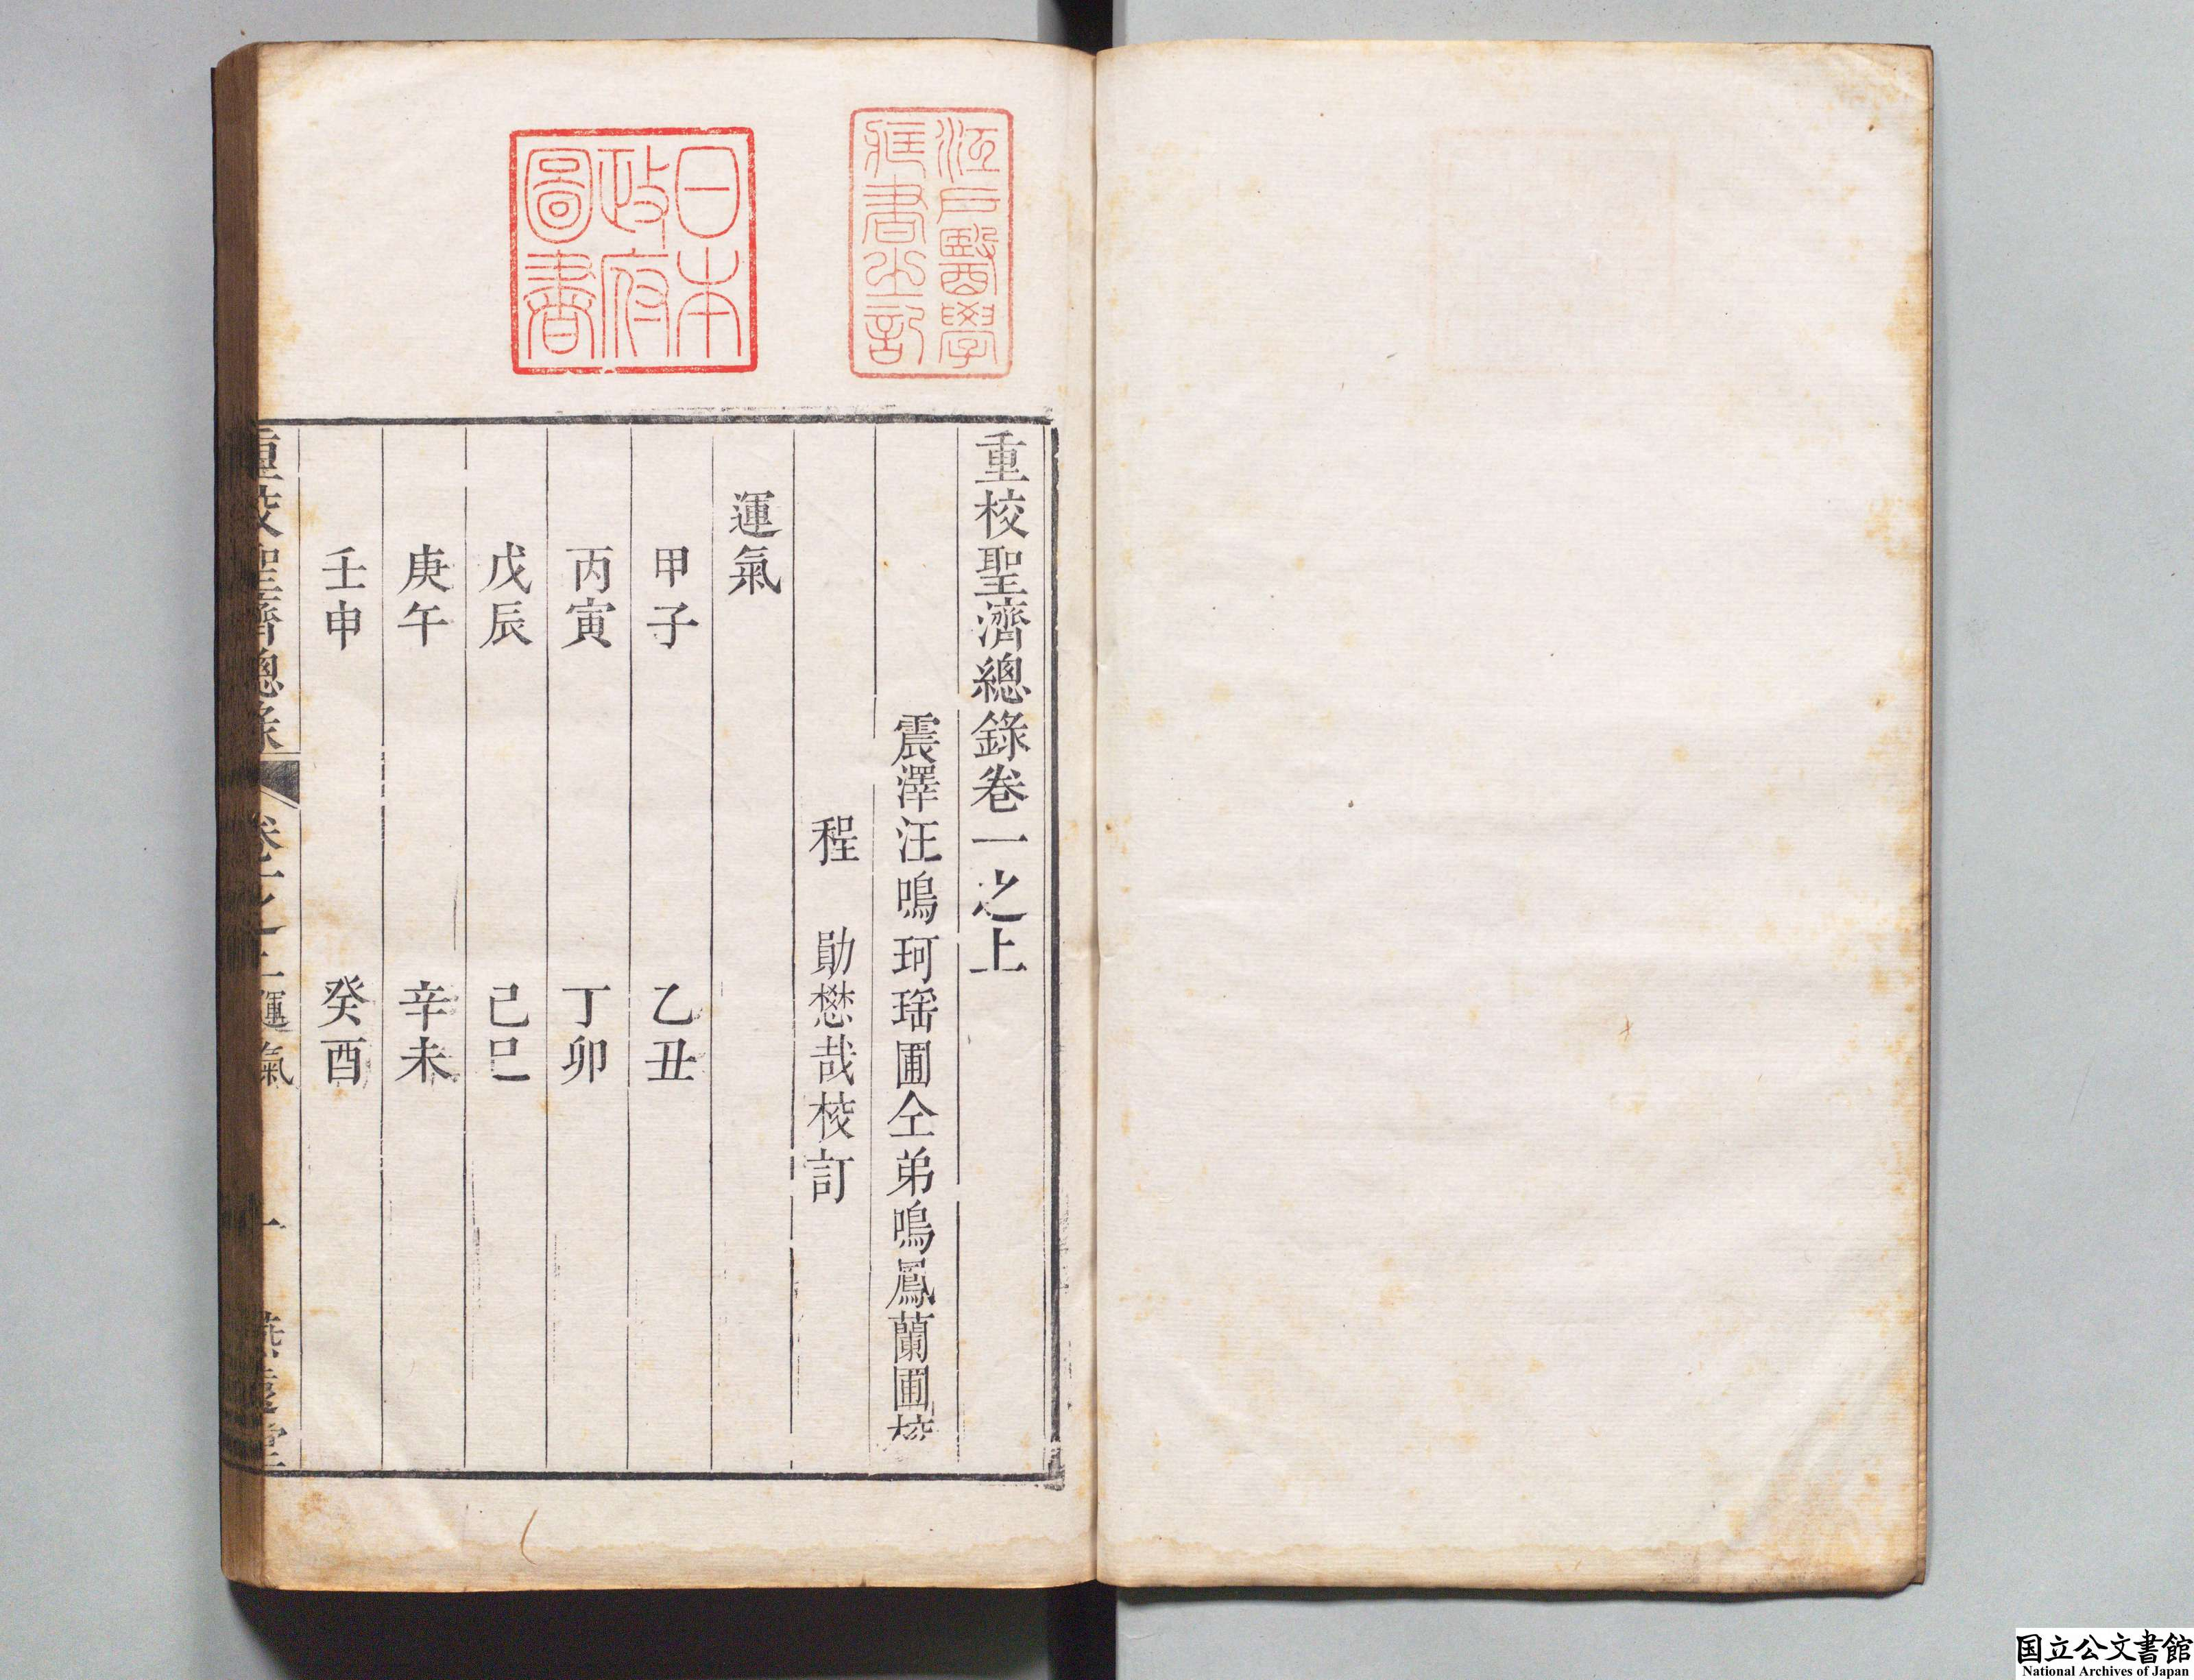 江戸醫學
藏書之記
日本
政府
圖書
重校聖濟總錄卷一之上
震澤汪鳴珂瑶圃仝弟鳴鳳蘭圃校
程 勛懋哉校訂
運氣
甲子 乙丑
丙寅 丁卯
戊辰 己巳
庚午 辛未
壬申 癸酉
重校聖濟總錄 卷一之上運氣 一 燕遠堂
国立公文書館
National Archives of Japan